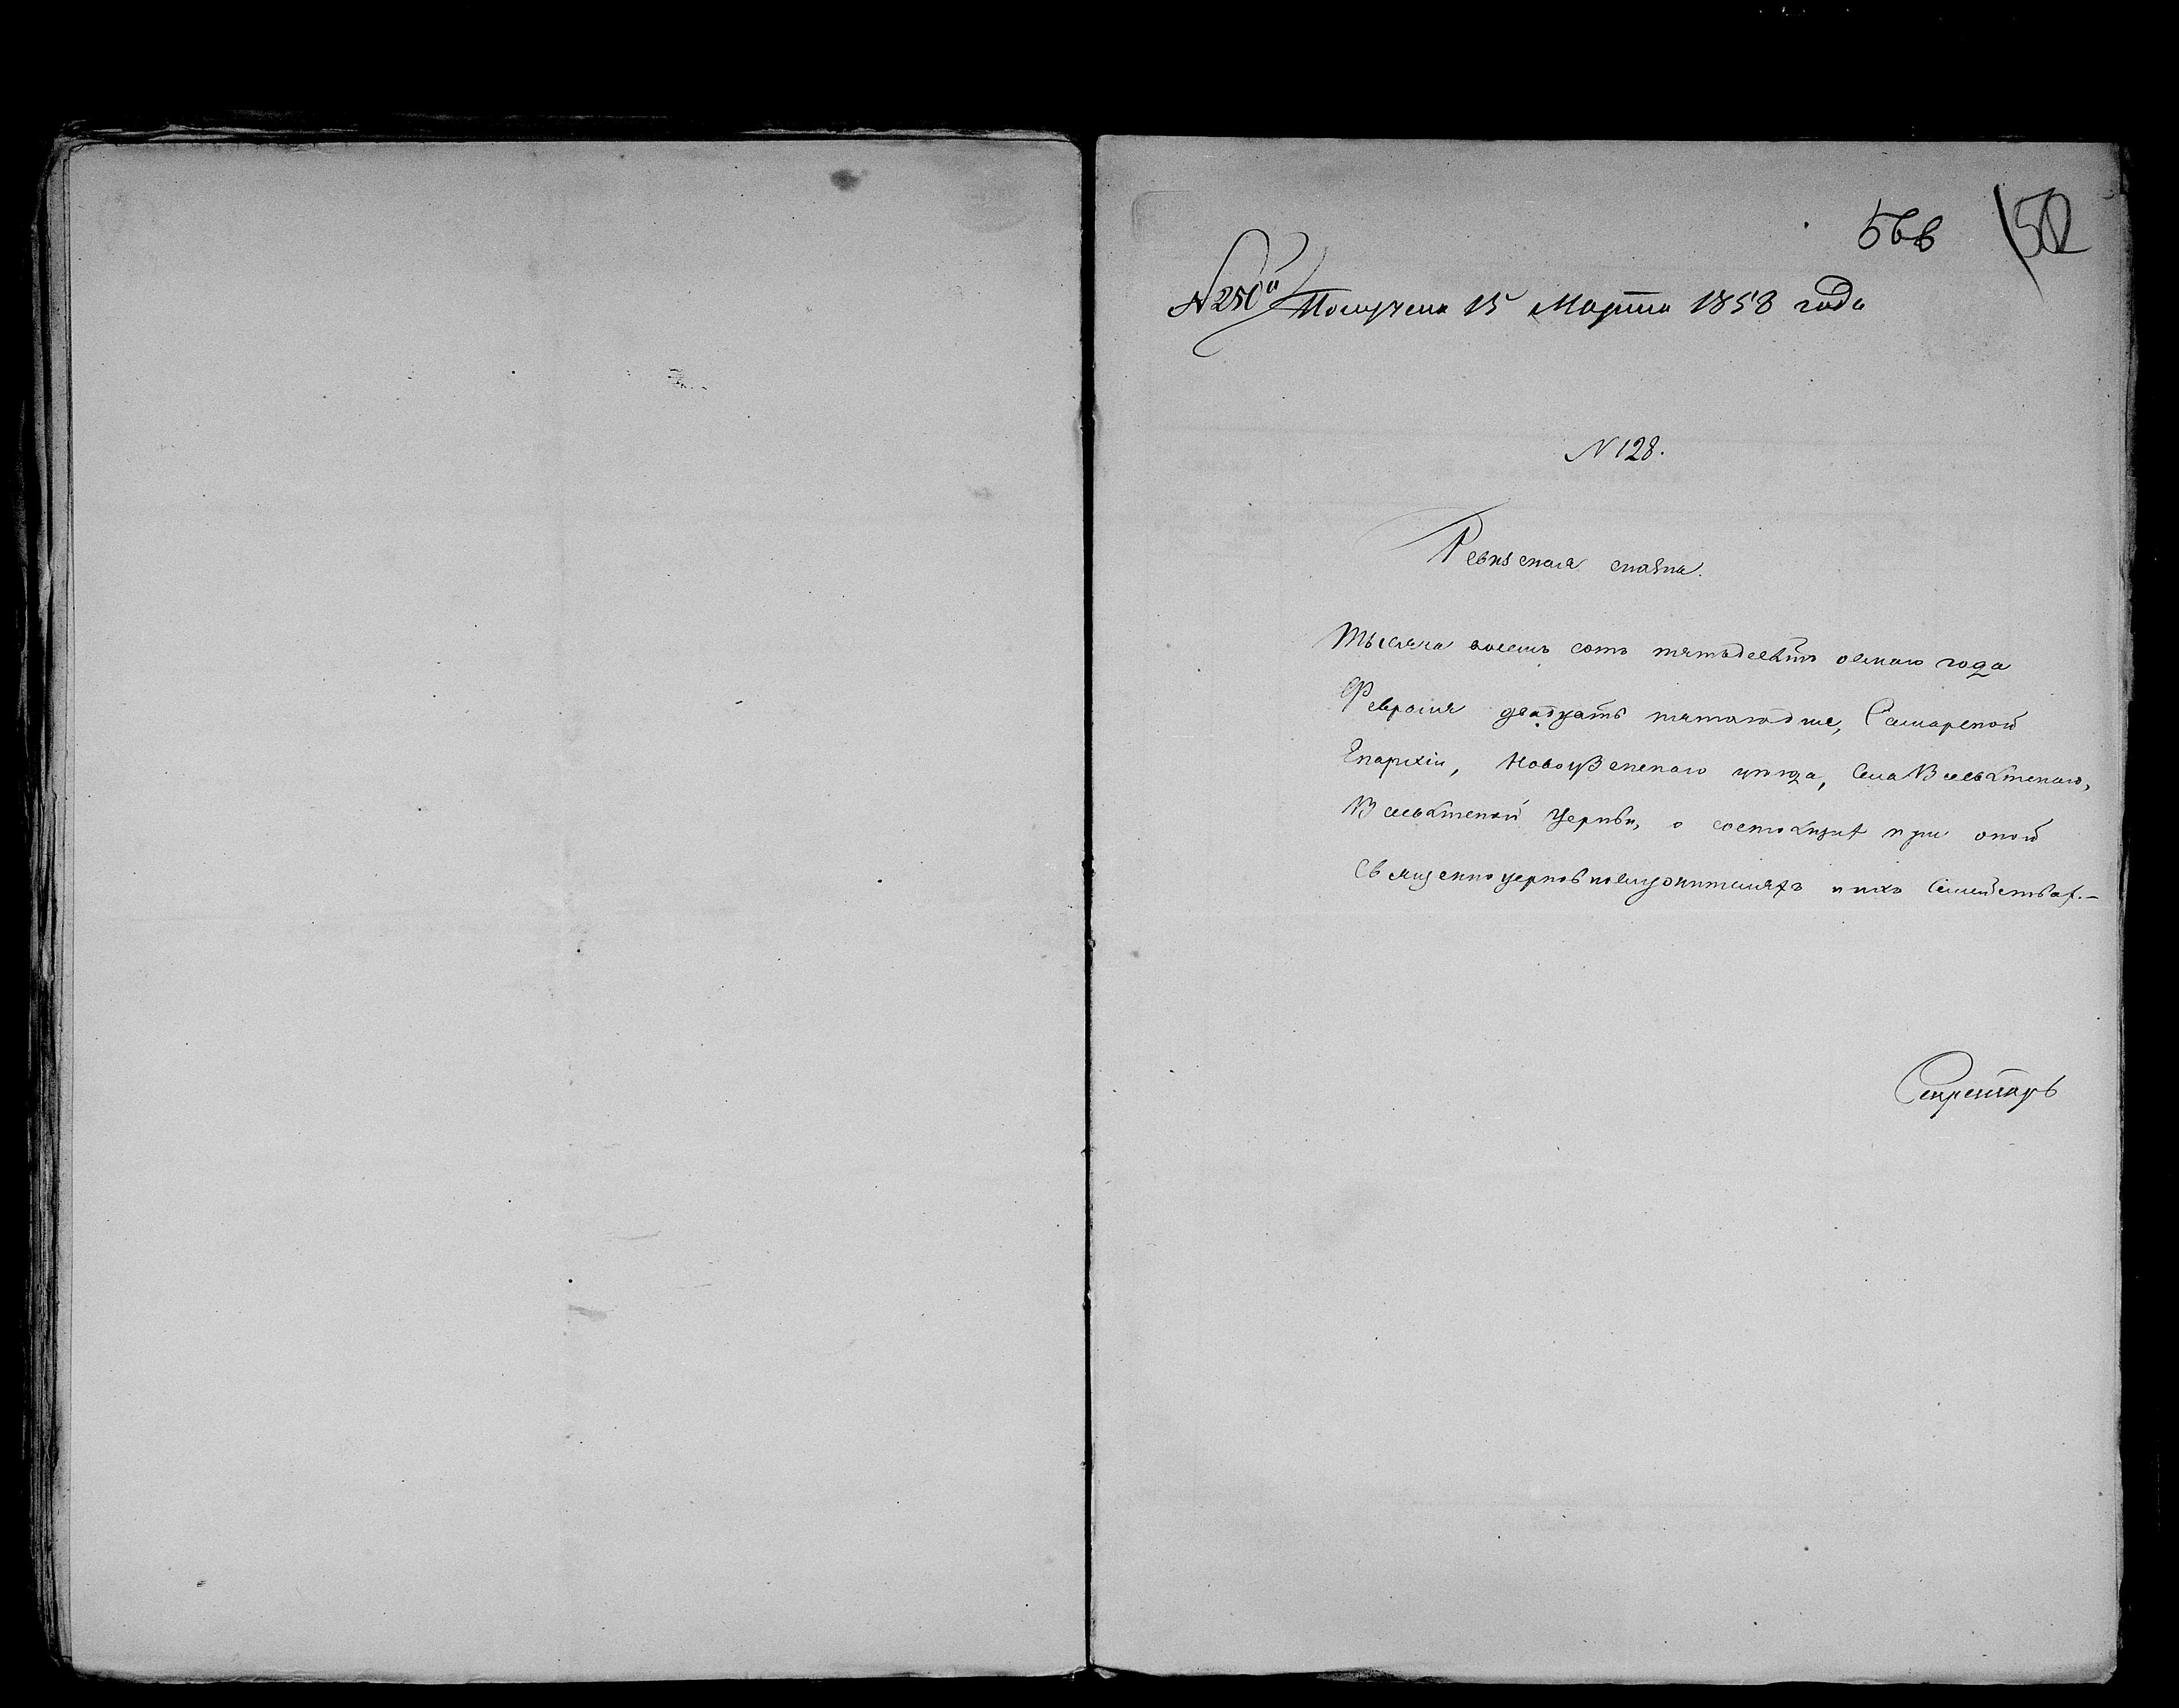 566 150
№ 250й Получена 15 Марта 1858 года
№ 128.
Ревизская сказка.
Тысяча восемь сотъ пятьдесятъ осмаго года
Февраля двадцать пятаго дне, Самарской
Епархіи, Новоузенскаго уѣзда, Села
Церкви, о состоящих при оной
Священноцерковнослужителяхъ и ихъ Семействах.—
Секретарь